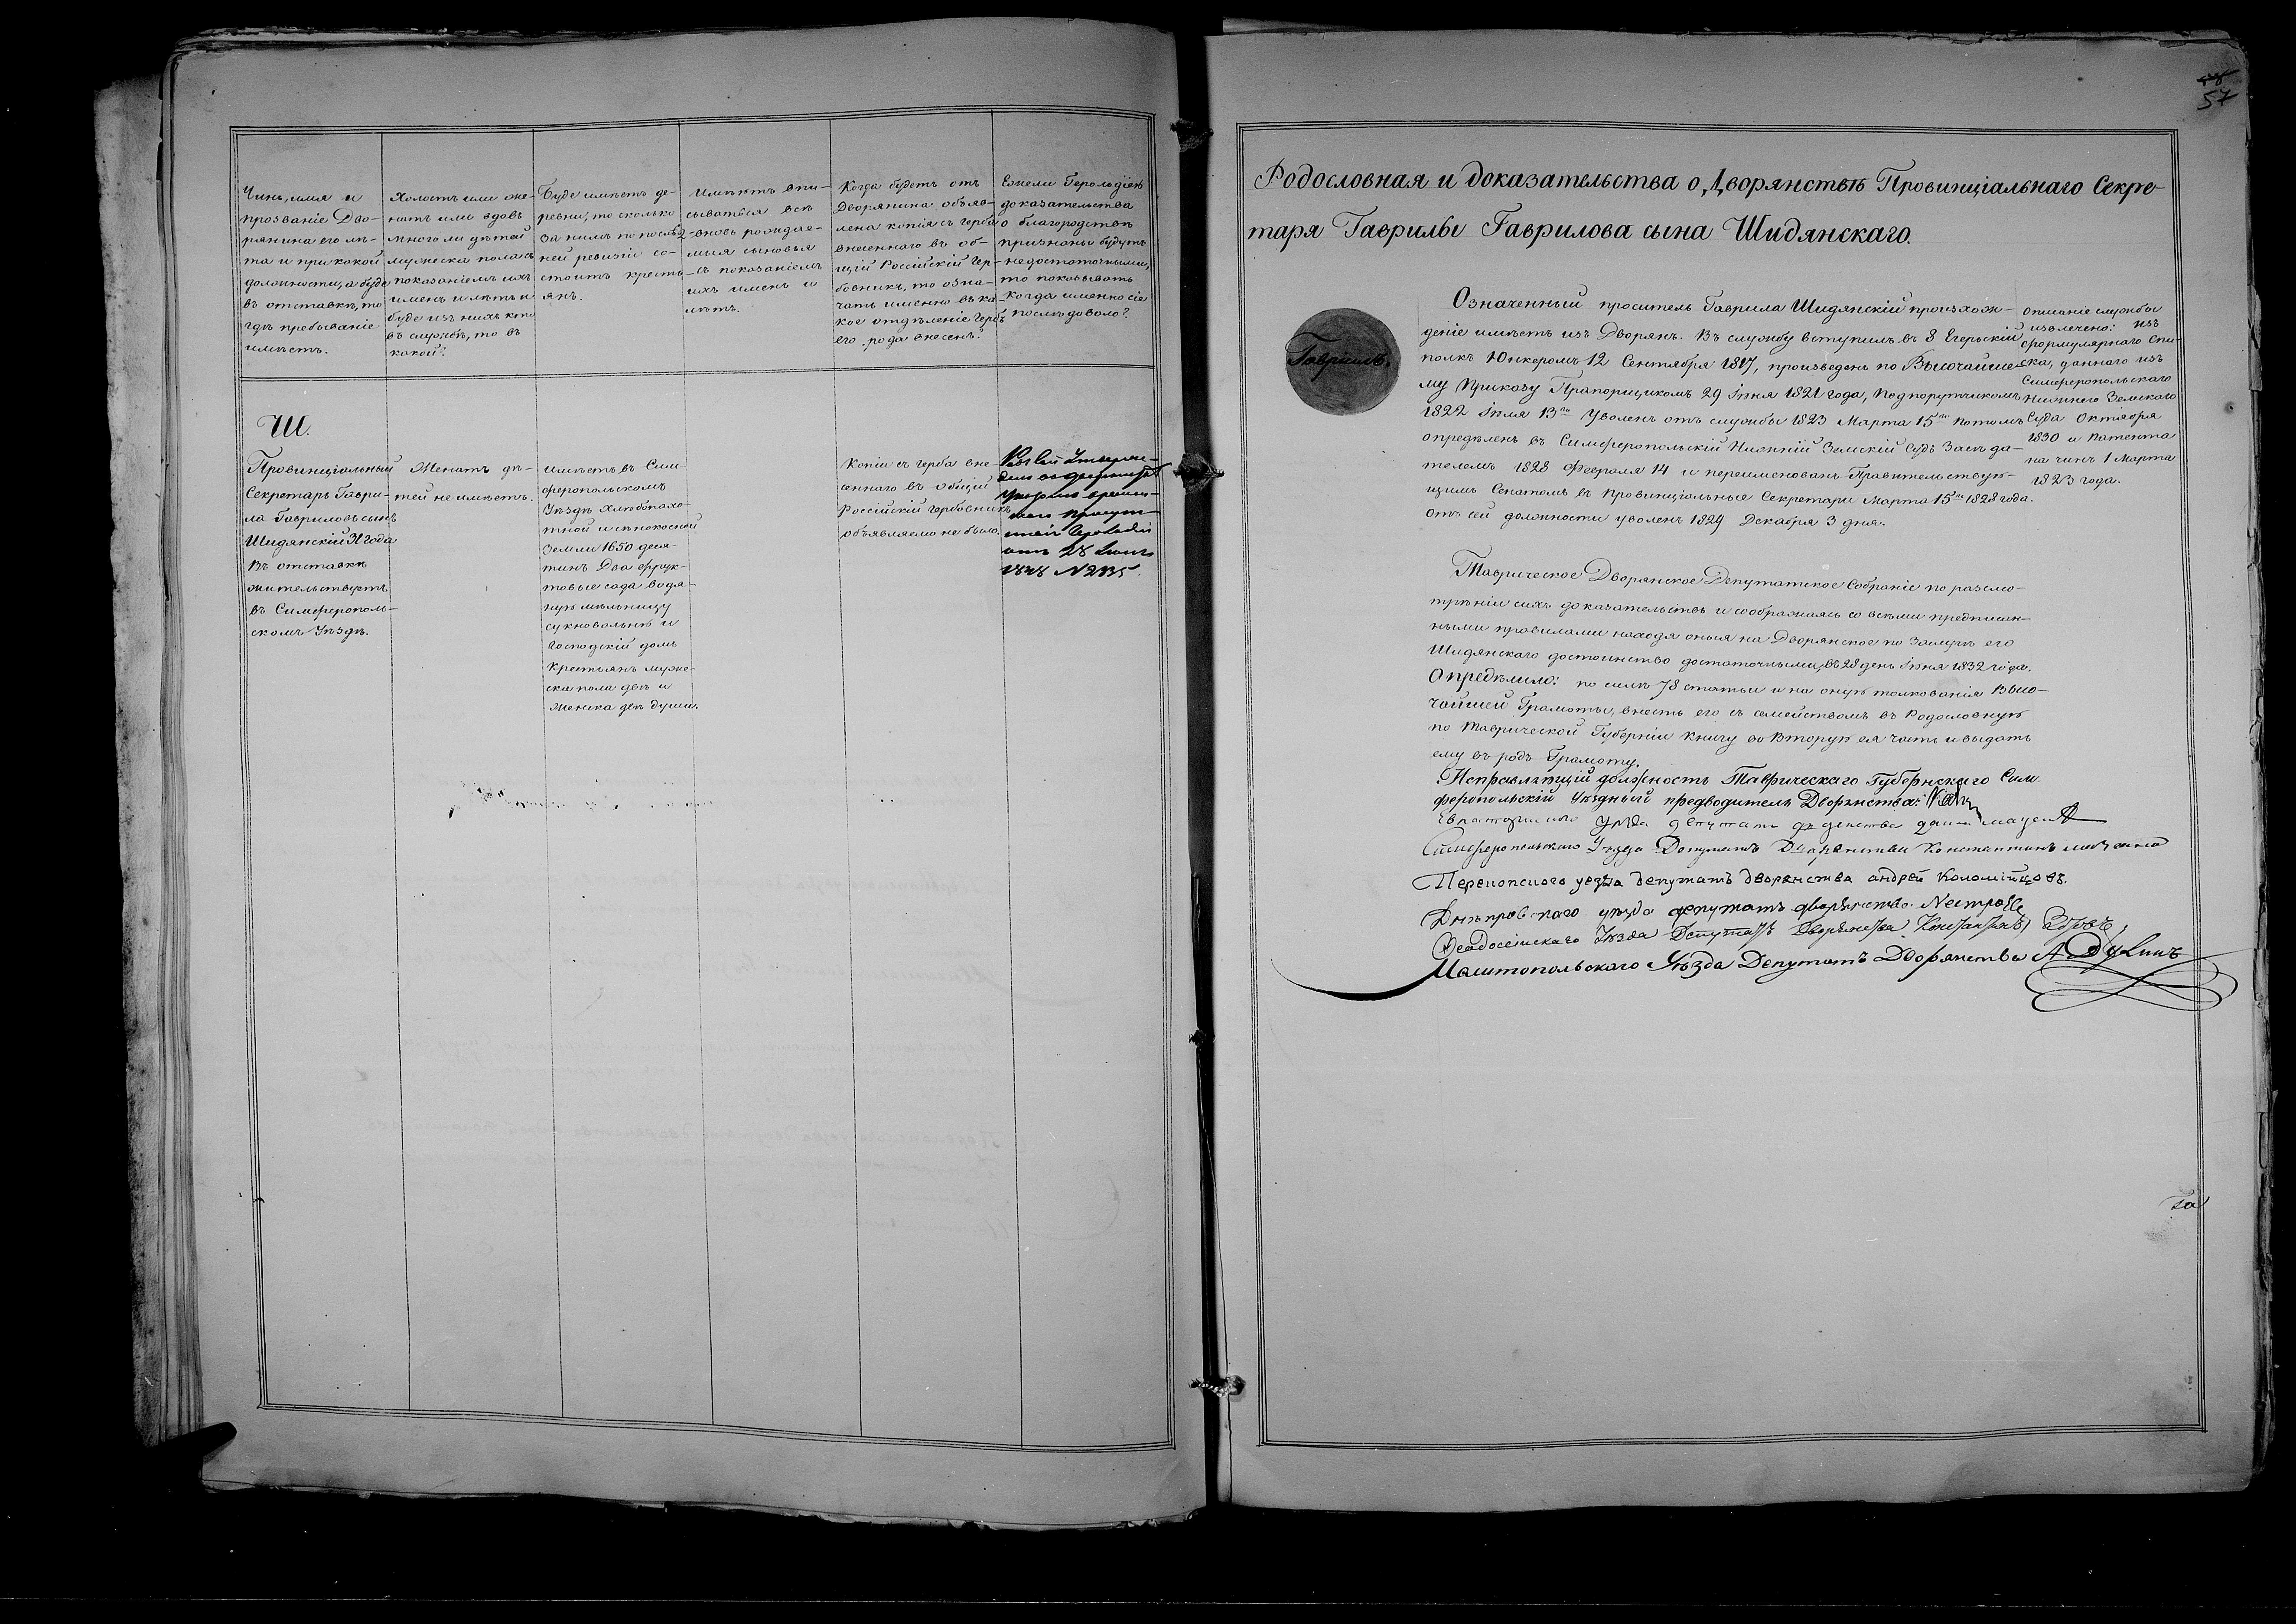 Чинъ, имя и
прозваніе Дво-
рянина его лѣ-
та и при какой
должности, а буде
въ отставкѣ, то
гдѣ пребываніе
имѣетъ.
Холостъ или же-
натъ или вдовъ
много ли дѣтей
мужеска пола съ
показаніемъ ихъ
именъ и лѣтъ и
буде изъ нихъ кто
въ службѣ, то въ
какой?
Буде имѣетъ де-
ревни, то сколько
за нимъ по послѣд-
ней ревизіи со-
стоитъ кресть-
янъ.
Имѣютъ впи-
сываться всѣ
вновь рождае-
мыя сыновья
съ показаніемъ
ихъ именъ и
лѣтъ.
Когда будетъ отъ
Дворянина объяв-
лена копія съ герба
внесеннаго въ об-
щій Россійскій Гер-
бовникъ, то озна-
чать именно въ ка-
кое отдѣленіе гербъ
его рода внесенъ?
Ежели Герольдіею
доказательства
о благородствѣ
признаны будутъ
недостаточными,
то показывать
когда именно сіе
послѣдовало?
Ш.
Провинціальный
Секретарь Гаври-
ла Гавриловъ сынъ
Шидянскій 31 года
Въ отставкѣ
жительствуетъ
въ Симферополь-
скомъ Уѣздѣ.
Женатъ дѣ-
тей не имѣетъ.
имѣетъ въ Сим-
феропольскомъ
Уѣздѣ хлѣбопахо-
тной и сѣнокосной
Земли 1650 деся-
тинъ Два фрук-
товые сада водя-
ную мѣльницу
сукновальню и
Господскій домъ
Крестьянъ муже-
ска пола двѣ и
женска двѣ души.
Копіи съ герба вне-
сеннаго въ Общій
Россійскій Гербовникъ
объявляемо не было.
Указомъ времен-
наго
Герольдіи
отъ 28
1848 №2135.
57
Родословная и доказательства о Дворянствѣ Провинціальнаго Секре-
таря Гаврилы Гаврилова сына Шидянскаго.
Гавріилъ.
Означенный проситель Гаврила Шидянскій происхож-
деніе имѣетъ изъ Дворянъ. Въ службу вступилъ въ 8 Егерьскій
полкъ Юнкеромъ 12 Сентября 1817, произведенъ по Высочайше-
му Приказу Прапорщикомъ 29 Іюня 1821 года, Подпорутчикомъ
1822 Іюля 13го Уволенъ отъ службы 1823 Марта 15го потомъ
опредѣленъ въ Симферопольскій Нижній Земскій Судъ Засѣда-
телемъ 1828 Февраля 14 и переименованъ Правительствую-
щимъ Сенатомъ въ Провинціальные Секретари Марта 15го 1828 года.
отъ сей должности уволенъ 1829 Декабря 3 дня.
Описаніе службы
извлечено: изъ
формулярнаго Спи-
ска, даннаго изъ
Симферопольскаго
Нижняго Земскаго
Суда Октября
1830 и патента
на чинъ 1 Марта
1823 года.
Таврическое Дворянское Депутатское Собраніе по разсмо-
трѣніи сихъ доказательствъ и соображаясь со всѣми предписан-
ными правилами находя оныя на Дворянское по Замужъ его
Шидянскаго достоинство достаточными, въ 28 день Іюня 1832 года.
Опредѣлило: по силѣ 78 статьи и на оную толкованія Высо-
чайшей Грамоты, внесть его съ семействомъ въ Родословную
по Таврической Губерніи Книгу во Вторую ея часть и выдать
ему въ родъ Грамоту.
Исправляющій должность Таврическаго Губернскаго Сим-
феропольскій Уѣздный предводитель Дворянства:
Евпаторійскаго Уѣзда депутатъ
Симферопольскаго Уѣзда Депутатъ Дворянства Константинъ
Перекопскаго уезда депутатъ дворянства андрей Коломійцовъ.
Днѣпровскаго уѣзда депутатъ дворянства
Феодосійскаго Уѣзда Депутатъ Дворянства
Уѣзда Депутатъ Дворянства